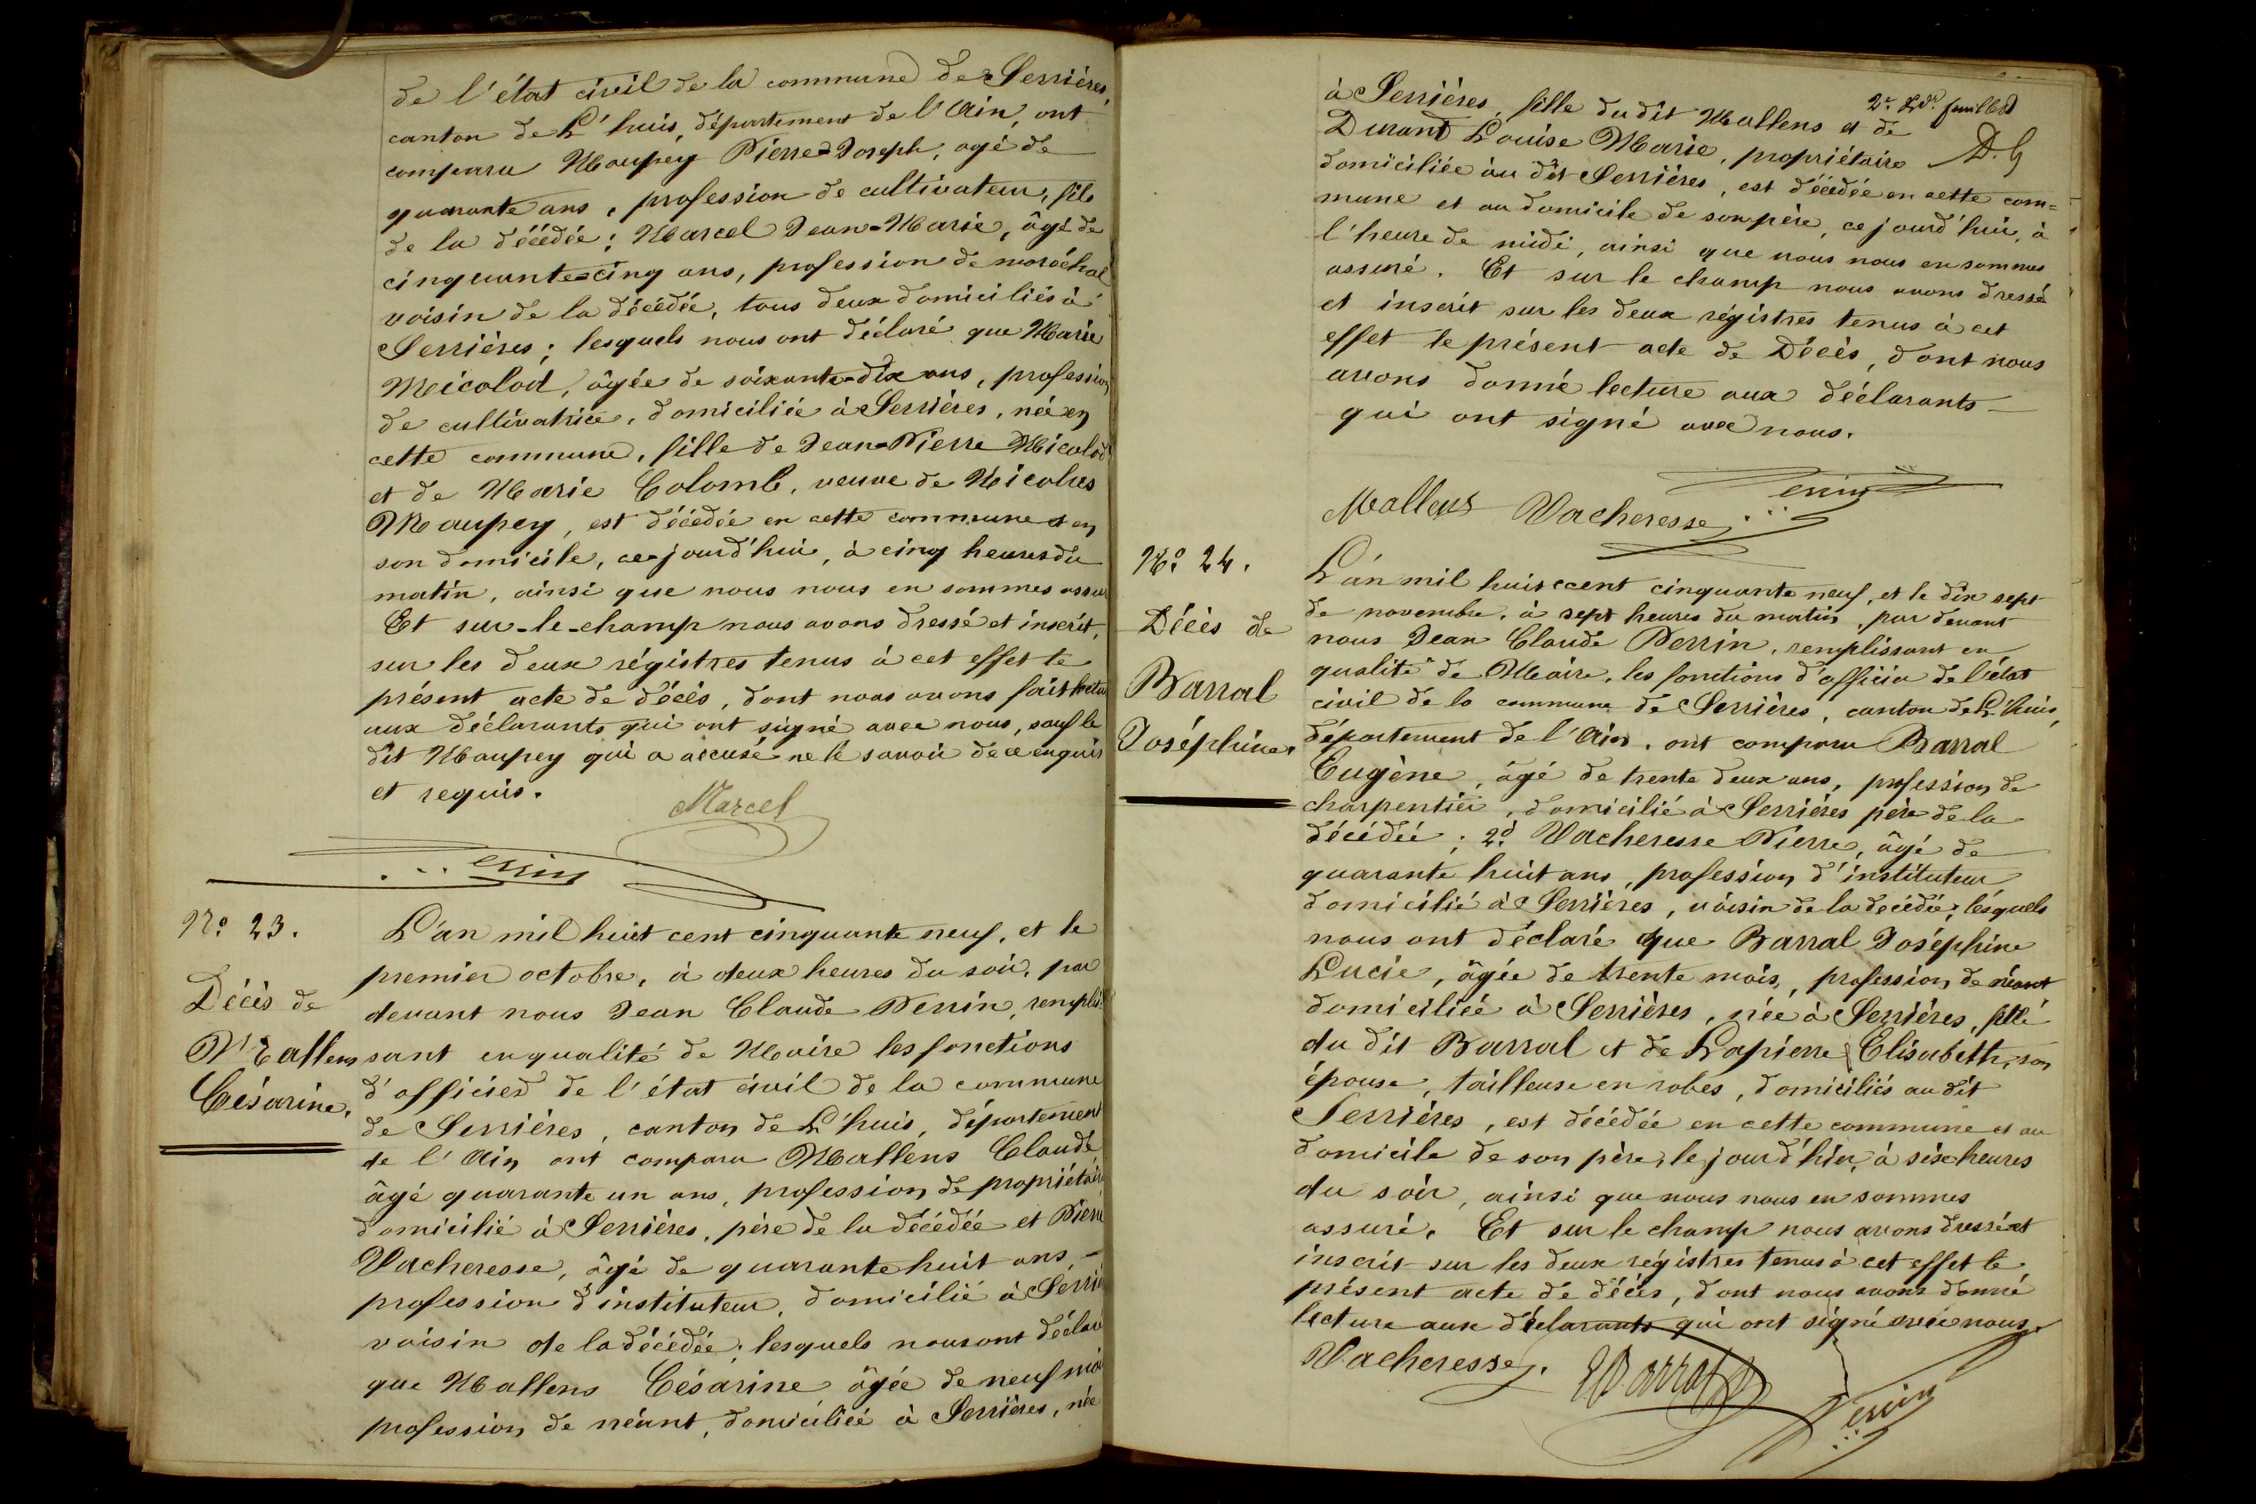 de l'état civil de la commune de Serrières,
canton de L'huis, département de l'Ain, ont
comparu Maupey Pierre=Joseph, agé de
quarante ans, profession de cultivateur, fils
de la décédée; Marcel Jean=Marie, âgé de
cinquante=cinq ans, profession de maréchal
voisin de la décédée, tous deux domiciliés à
Serrières; lesquels nous ont déclaré que Marie
Micolod, âgée de soixante=dix ans, profession
de cultivatrice, domiciliée à Serrières, née en
cette commune, fille de Jean=Pierre Micolod
et de Marie Colomb, veuve de Nicolas
Maupey, est décédée en cette commune et en
son domicile, ce=jourd'hui, à cinq heures du
matin, ainsi que nous nous en sommes assu
Et sur-le-champ nous avons dressé et inscrit,
sur les deux régistres tenus à cet effet le
présent acte de décès, dont nous avons fait lectu
aux déclarants qui ont signé avec nous, sauf le
dit Maupey qui a accusé ne le savoir de ce enquis
et requis.
Marcel
Perrin
No. 23.
Décès de
Mallens
Césarine.
L'an mil huit cent cinquante neuf, et le
premier octobre, à deux heures du soir, par
devant nous Jean Claude Perrin, remplis
sant en qualité de Maire les fonctions
d'officier de l'état civil de la commune
de Serrières, canton de L'huis, département
de l'Ain ont comparu Mallens Claude
âgé quarante un ans, profession de propriétaire
domicilié à Serrières, père de la décédée et Pierre
Vacheresse, âgé de quarante huit ans -
profession d'instituteur, domicilié à Serriè
voisin de la décédée; lesquels nous ont déclar
que Mallens Césarine âgée de neuf moi
profession de néant, domiciliée à Serrières, née
2e feuillet
D. G
à Serrières, fille du dit Mallens et de
Durand Louise Marie, propriétaire
domiciliée au dit Serrières, est décédée en cette com=
mune et au domicile de son père, ce jourd'hui, à
l'heure de midi, ainsi que nous nous en sommes
assuré. Et sur le champ nous avons dressé
et inscrit sur les deux régistres tenus à cet
effet le présent acte de Décès, dont nous
avons donné lecture aux déclarants -
qui ont signé avec nous.
Mallens Vacheresse Perrin
No. 24.
Décès de
Barral
Joséphine.
L'an mil huit cent cinquante neuf, et le dix sept
de novembre, à sept heures du matin, par devant
nous Jean Claude Perrin, remplissant en
qualité de Maire, les fonctions d'officier de l'état
civil de la commune de Serrières, canton de L'huis,
département de l'Ain, ont comparu Barral
Eugène, âgé de trente deux ans, profession de
charpentier, domicilié à Serrières père de la
décédée; 2d Vacheresse Pierre, âgé de
quarante huit ans, profession d'instituteur
domicilié à Serrières, voisin de la decédée; lesquels
nous ont déclaré que Barral Joséphine
Lucie, âgée de trente mois, profession de néant
domiciliée à Serrières, née à Serrières, fille
du dit Barral et de Lapierre Elisabeth, son
épouse, tailleuse en robes, domiciliés au dit
Serrières, est décédée en cette commune et au
domicile de son père, le jour d'hier, à six heures
du soir, ainsi que nous nous en sommes
assuré. Et sur le champ nous avons dressé et
inscrit sur les deux régistres tenus à cet effet le
présent acte de décès, dont nous avons donné
lecture aux déclarants qui ont signé avec nous.
Vacheresse. EBarral Perrin